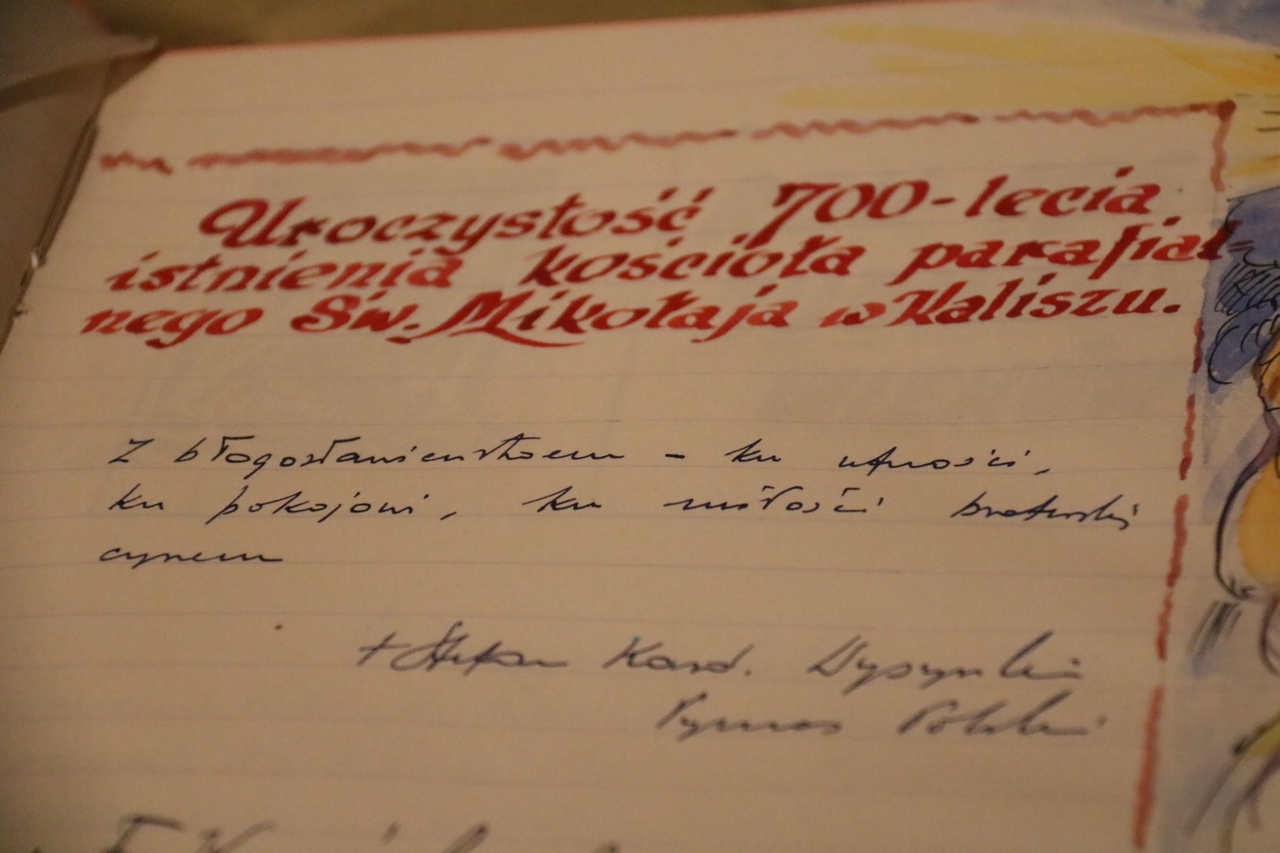 Uroczystość 700-lecia
istnienia kościoła parafial-
nego Św. Mikołaja w Kaliszu.
Z błogosławieństwem - ku ufności,
ku pokojowi, ku miłości braterskiej
czynem
+ Stefan Kard. Wyszyński
Prymas Polski